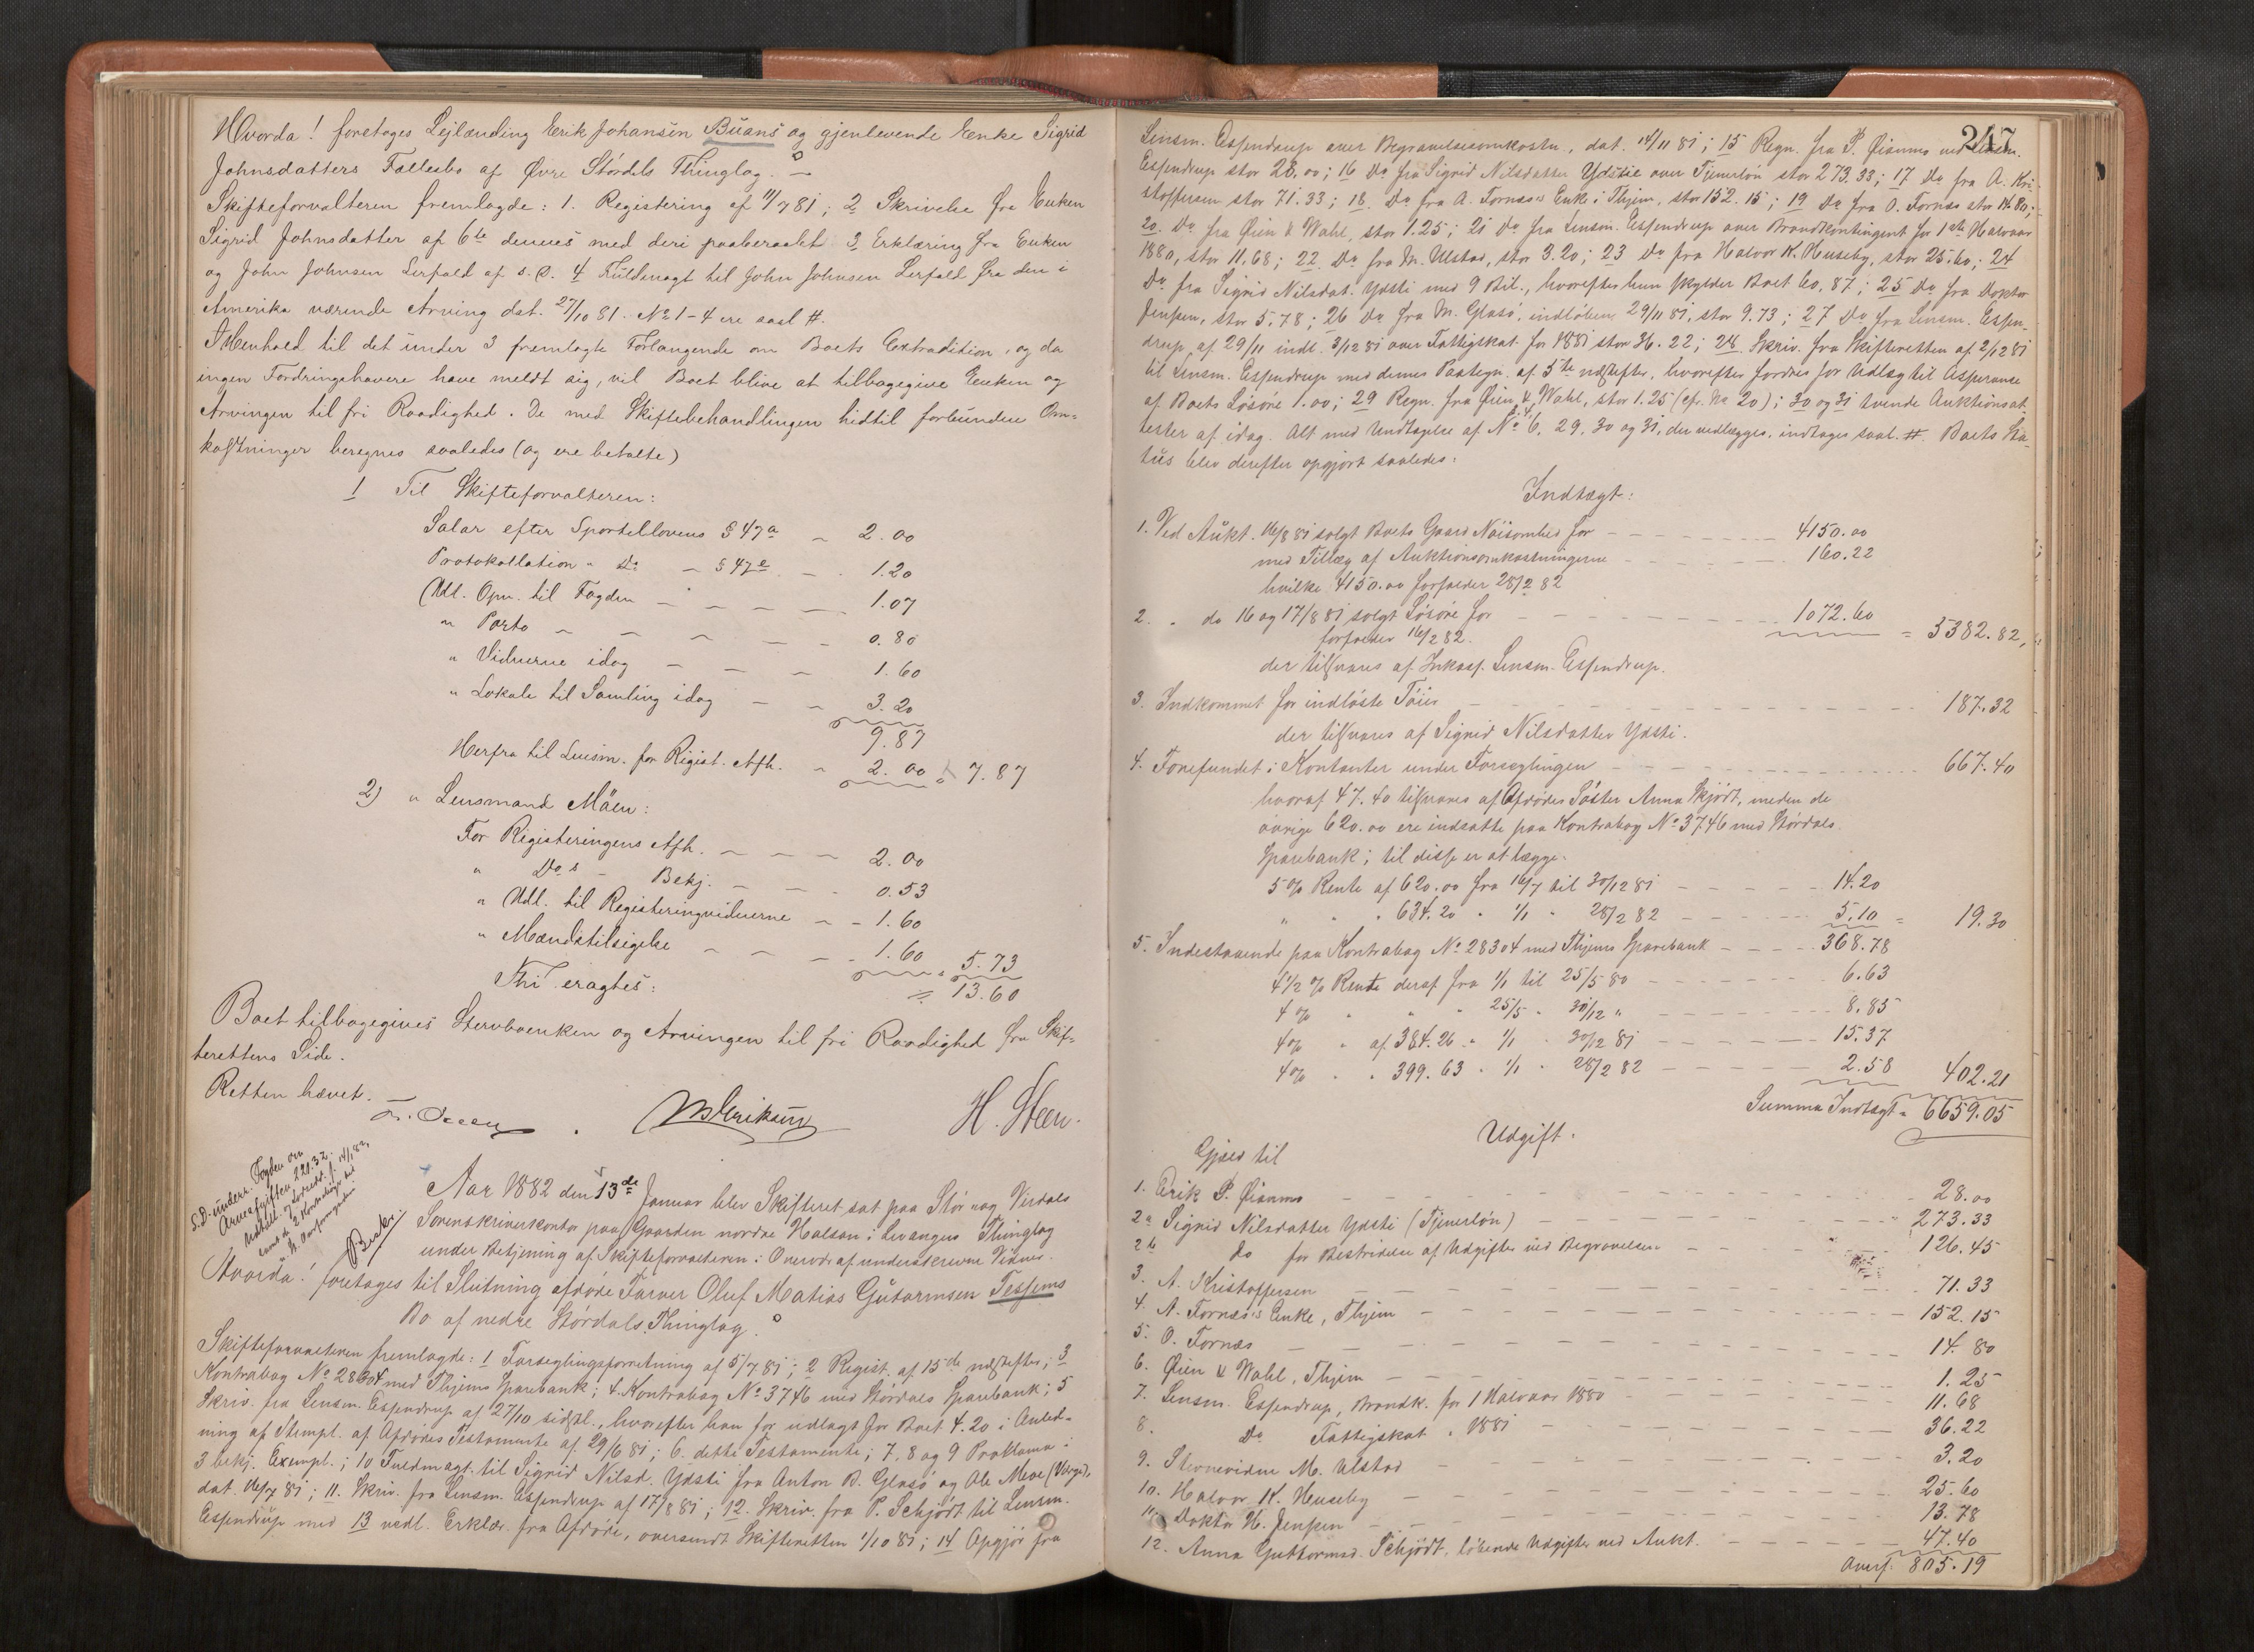 Hvorda! foretoges Lejlænding Erik Johansen Buans og gjenlevende Enke Sigrid
Johnsdatters Fællesbo af Øvre Stördls Thinglag.
Skifteforvalteren fremlagde: 1. Registering af 11/7 81; 2 Skrivelse fra Enken
Sigrid Johnsdatter af 6te dennes med deri paaberaabt 3 Erklæring fra Enken
og John Johnsen Lerfald af s. D. 4 Fuldmagt til John Johnsen Lerfald fra den i
Amerika værende Arving dat. 27/10 81. No 1-4 ere saal #.
I Henhold til det under 3 fremlagte Forlangende om Boets Extradition, og da
ingen Fordringshavere have meldt sig, vil Boet blive at tilbagegive Enken og
Arvingen til fri Raadighed. De med Skiftebehandlingen hidtil forbundne Om-
kostninger beregnes saaledes (og ere betalte)
1 Til Skifteforvalteren:
Salar efter Sportellovens § 47a 2.00
Protokollation " Do § 47e 1.20
Udl. Opn. til Fogden 1.07
" Porto 0.80
" Vidnerne idag 1.60
" Lokale til Samling idag 3.20
9.87
Herfra til Lensm. for Regist. Afh. 2.00 = 7.87
2) " Lensmand Mäen:
For Registeringens Afh. 2.00
" Dos Bekj. 0.53
" Udl. til Registeringvidnerne 1.60
" Mændstilsigelse 1.60 = 5.73
= 13.60
Thi eragtes:
Boet tilbagegives Stervboenken og Arvingen til fri Raadighed fra Skif-
terettens Side.
Retten hævet.
H. Steen.
S.D. underr. Fogden om
Arveafgiften 221.32.
Aar 1882 den 13de Januar blev Skifteret sat paa Stör- og Verdals
Sorenskriverkontor paa Gaarden nordre Halsan i Levangers Thinglag
under Betjening af Skifteforvalteren i Overvær af underskrevne Vidner.
Hvorda! foretoges til Slutning afdöde Farver Oluf Matias Gutormsen Tessems
Bo af nedre Stördals Thinglag.
Skifteforvalteren fremlagde: 1 Forseglingsforretning af 5/7 81; 2 Regist. af 15de næstefter; 3
Kontrabog No 28304 med Thjems Sparebank; 4. Kontrabog No 3746 med Stördals Sparebank; 5
Skriv. fra Lensm. Essendrup af 27/10 sidstl., hvorefter han for udlagt for Boet 4.20 i Anled-
ning af Stempl. af Afdödes Testamente af 29/6 81; 6. dette Testamente; 7, 8 og 9 Proklama i
3 bekj. Exempl.; 10 Fuldmagt til Sigrid Nilsd. Ydsti fra Anton B. Glasö og Ole Meve (Værge),
dat. 16/7 81; 11. Skriv. fra Lensm. Essendrup af 17/8 81; 12. Skriv. fra P. Schjödt til Lensm.
Essendrup med 13 vedl. Erklær. fra Afdöde, oversendt Skifteretten 1/10 81; 14 Opgjör fra
247
Lensm. Essendrup over Begravelsesomkostn., dat. 14/11 81; 15 Regn. fra P. Øianmo ved Lensm.
Essendrup stor 28.00; 16 Do fra Sigrid Nilsdatter Ydstie over Tjenerlön stor 273.33; 17 Do fra A. Kri-
stoffersen stor 71.33; 18. Do fra A. Fornæs's Enke i Thjem, stor 152.15; 19 Do fra O. Fornæs stor 14.80;
20. Do fra Øien & Wahl, stor 1.25; 21 Do fra Lensm. Essendrup over Brandkontingent for 1ste Halvaar
1880, stor 11.68; 22 Do fra M. Ulstad, stor 3.20; 23 Do fra Halvor K. Huseby, stor 25.60; 24
Do fra Sigrid Nilsdat. Ydsti med 9 Bil., hvorefter hun skylder Boet 60.87; 25 Do fra Doktor
Jenssen, stor 5.78; 26 Do fra M. Glasö, indlöben 29/11 81, stor 9.73; 27 Do fra Lensm. Essen-
drup af 29/11 indl. 3/12 81 over Fattigskat for 1881 stor 36.22; 28 Skriv. fra Skifteretten af 2/12 81
til Lensm. Essendrup med dennes Paategn. af 5te næstefter, hvorefter fordres for Udlæg til Assurance
af Boets Lösöre 1.00; 29 Regn. fra Øien & Wahl, stor 1.25 (cfr. No 20); 30 og 31 tvende Auktionsat-
tester af idag. Alt med Undtagelse af No 6, 29, 30 og 31, der vedlægges, indtages saal. #. Boets Sta-
tus blev derefter opgjört saaledes:
Indtægt:
1. Ved Aukt. 16/8 81 solgt Boets Gaard Nöisomhed for 4150.00
med Tillæg af Auktionsomkostningerne 160.22
hvilke 4150.00 forfalder 28/2 82
2. " do 16 og 17/8 81 solgt Lösöre for 1072.60 = 5382.82
forfalder 16/2 82.
der tilsvares af Inkass. Lensm. Essendrup.
3. Indkommet for indlöste Töier 187.32
der tilsvares af Sigrid Nilsdatter Ydsti.
4. Forefundet i Kontanter under Forseglingen 667.40
hvoraf 47.40 tilsvares af Afdödes Söster Anna Skjödt, meden de
övrige 620.00 ere indsatte paa Kontrabog No 3746 med Stördals
Sparebank; til disse er at lægge:
5% Rente af 620.00 fra 16/7 til 31/12 81 14.20
" " " 634.20 " 1/1 " 28/2 82 5.10 = 19.30
5. Indestaaende paa Kontrabog No 28304 med Thjems Sparebank 368.78
4 1/2 % Rente deraf fra 1/1 til 25/5 80 6.63
4 % " " " 25/5 " 31/12 " 8.85
4 % " af 384.26 " 1/1 " 31/12 81 15.37
4 % " " 399.63 " 1/1 " 28/2 82 2.58 402.21
Summa Indtægt = 6659.05
Udgift.
Gjæld til
1. Erik P. Øianmo 28.00
2a Sigrid Nilsdatter Ydsti (Tjenerlön) 273.33
2b Do for Bestridelse af Udgifter ved Begravelsen 126.45
3. A. Kristoffersen 71.33
4. A. Fornæs's Enke, Thjem 152.15
5. O. Fornæs 14.80
6. Øien & Wahl, Thjem 1.25
7. Lensm. Essendrup, Brandk. for 1 Halvaar 1880 11.68
8. Do Fattigskat " 1881 36.22
9. Stevnevidne M. Ulstad 3.20
10. Halvor K. Huseby 25.60
11. Doktor H. Jenssen 13.78
12. Anna Guttormsd. Schjödt, löbende Udgifter ved Aukt. 47.40
Overf. 805.19